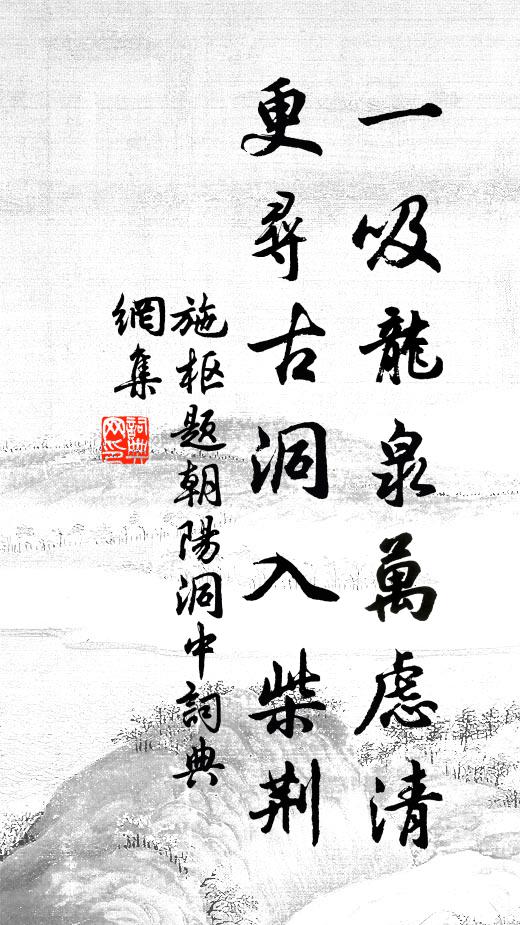 一吸龍泉萬慮清
更尋古洞入柴荆
施枢题朝陽洞中詞典
網集
詞典網印